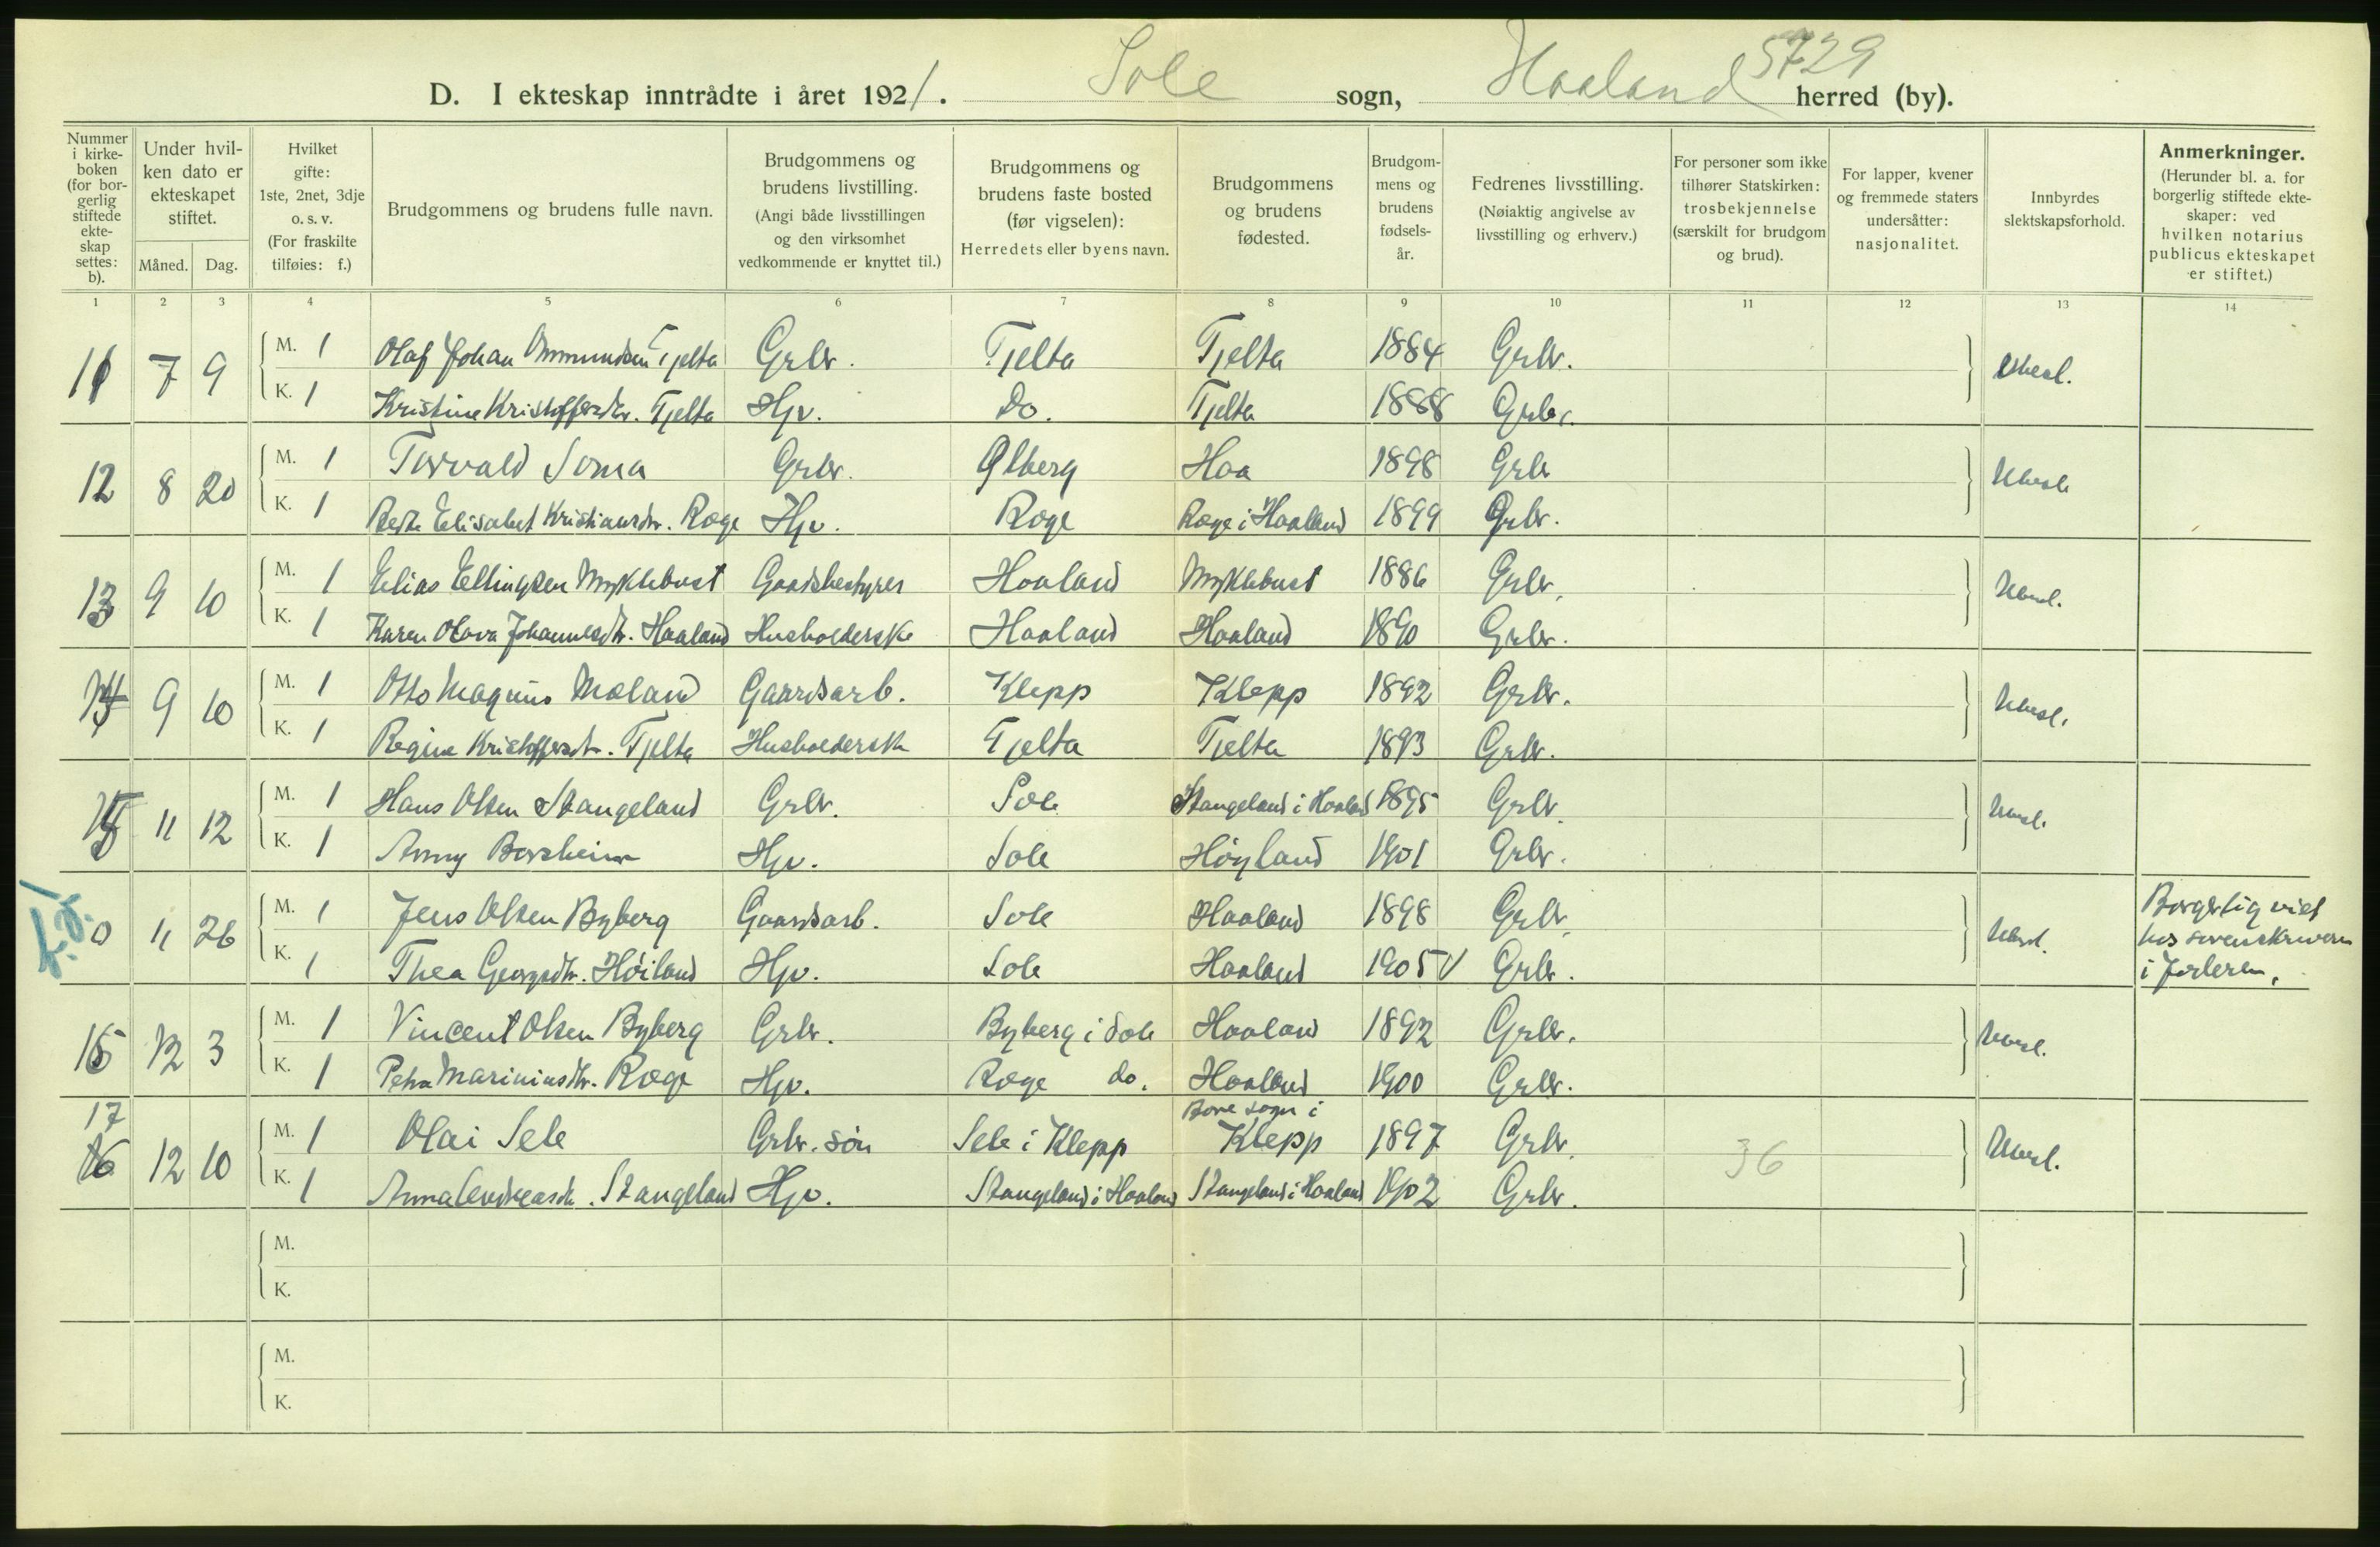 5729
D. I ekteskap inntrådte i året 1921. Sole sogn, Haaland herred (by).
Nummer i kirke-boken (for bor-gerlig stiftede ekte-skap settes: b).
Under hvil-ken dato er ekteskapet stiftet.
Måned. Dag.
Hvilket gifte: 1ste, 2net, 3dje o. s. v. (For fraskilte tilføies: f.)
Brudgommens og brudens fulle navn.
Brudgommens og brudens livstilling. (Angi både livsstillingen og den virksomhet vedkommende er knyttet til.)
Brudgommens og brudens faste bosted (før vigselen): Herredets eller byens navn.
Brudgommens og brudens fødested.
Brudgom-mens og brudens fødsels-år.
Fedrenes livsstilling. (Nøiaktig angivelse av livsstilling og erhverv.)
For personer som ikke tilhører Statskirken: trosbekjennelse (særskilt for brudgom og brud).
For lapper, kvener og fremmede staters undersåtter: nasjonalitet.
Innbyrdes slektskapsforhold.
Anmerkninger. (Herunder bl. a. for borgerlig stiftede ekte-skaper: ved hvilken notarius publicus ekteskapet er stiftet.)
1 2 3 4 5 6 7 8 9 10 11 12 13 14
11 7 9 M. 1 Olaf Johan Ommundsen Tjelta Grbr. Tjelta Tjelta 1884 Grbr. Ubesl.
K. 1 Kristine Kristoffersdtr. Tjelta Hjv. Do. Tjelta 1888 Grbr.
12 8 20 M. 1 Torvald Soma Grbr. Alberg Haa 1898 Grbr Ubesl.
K. 1 Elisabet Kristiansdtr. Røge Hjv. Røge Røge i Haaland 1899 Grbr.
13 9 10 M. 1 Elias Ellingsen Myklebust Gaardsbestyrer Haaland Myklebust 1886 Grbr. Ubesl.
K. 1 Karen Olava Johannesdtr. Haaland Husholderske Haaland Haaland 1890 Grbr.
14 9 10 M. 1 Otto Magnus Mæland Gaardsarb. Klepp Klepp 1892 Grbr. Ubesl.
K. 1 Regine Kristoffersdtr. Tjelta Husholdersk Tjelta Tjelta 1893 Grbr.
15 11 12 M. 1 Hans Olsen Stangeland Grbr. Sole Stangeland i Haaland 1895 Grbr. Ubesl.
K. 1 Anny Borsheim Hjv. Sole Høyland 1901 Grbr.
0 11 26 M. 1 Jens Olsen Byberg Gaardsarb. Sole Haaland 1898 Grbr. Ubesl. Borgerlig viet
hos sorenskriveren
i Jæderen.
K. 1 Thea Georgsdtr. Høiland Hjv. Sole Haaland 1905 V Grbr.
16 12 3 M. 1 Vincent Olsen Byberg Grbr. Byberg i Sole Haaland 1892 Grbr. Ubesl.
K. 1 Petra Mariniusdtr. Røge Hjv. Røge do. Haaland 1900 Grbr.
17
16 12 10 M. 1 Olai Sele Grbr. søn Sele i Klepp Bore sogn i Klepp 1897 Grbr. 36 Ubesl.
K. 1 Anna Andreasdtr. Stangeland Hjv. Stangeland i Haaland Stangeland i Haaland 1902 Grbr.
M.
K.
M.
K.